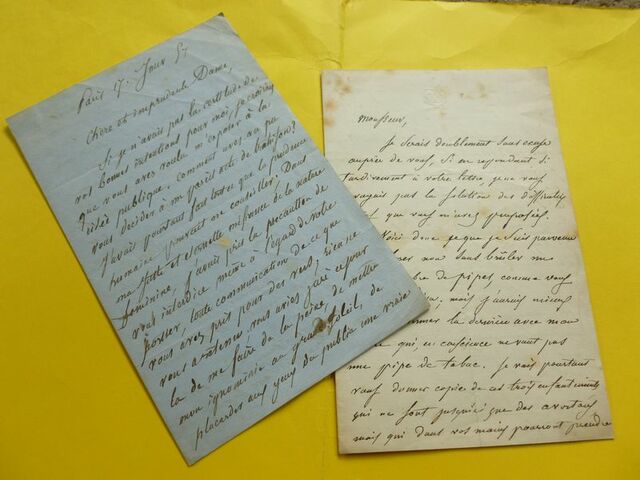 Paris 7. Jour 57
Chère et imprudente Dame,
Si je n'avais pas la certitude de
vos bonnes intentions pour moi, je croirais
que vous avez voulu m'exposer à la
risée publique. comment avez-vous pu
vous décider à un pareil acte de
J'avais pourtant fait tout ce que la prudence
humaine pouvait me conseiller. Dans
ma juste et éternelle méfiance de la nature
féminine, j'avais pris la précaution de
vous interdire même à l'égard de votre
toute communication de ce que
vous avez pris pour des vers; rien ne
vous a retenue, vous aviez juré ce jour
là de me faire de la peine, de mettre
mon ignominie au grand soleil, de
placarder aux yeux du public une vraie
Monsieur,
Je serais doublement sans excuse
auprès de vous, si en répondant si
tardivement à votre lettre, je ne vous
envoyais pas la solution des difficultés
que vous m'avez proposées.
Voici donc ce que je suis parvenu
non sans brûler me
de pipes comme vous
mais j'aurais mieux
la dernière avec mon
ce qui, en conscience ne vaut pas
une pipe de tabac. Je vais pourtant
vous donner copie de ces trois enfantements
qui ne sont jusqu'ici que des avortons
mais qui dans vos mains pourront prendre